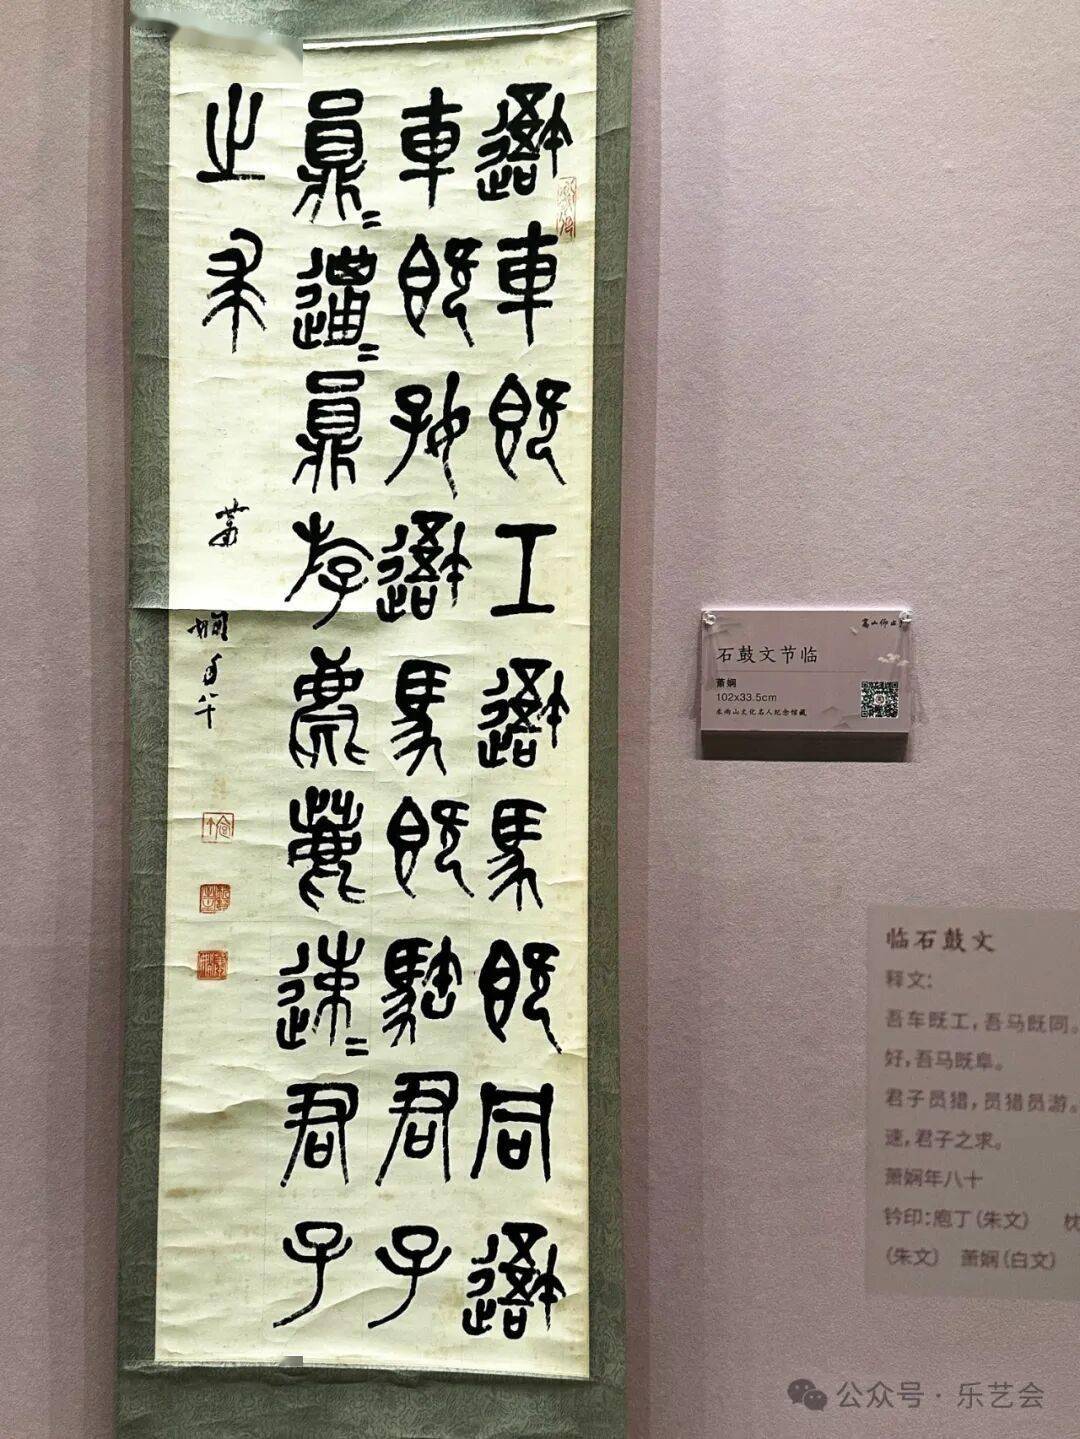 吾車既工吾馬既同吾
車既好吾馬既阜君子
員=邋=員斿麀鹿速=君子
之求
蕭嫻年八十
石鼓文节临
萧娴
102x33.5cm
临石鼓文
释文:
吾车既工,吾马既同。
好,吾马既阜。
君子员猎,员猎员游。
速,君子之求。
萧娴年八十
钤印:庖丁(朱文) 枕
(朱文) 萧娴(白文)
公众号·乐艺会